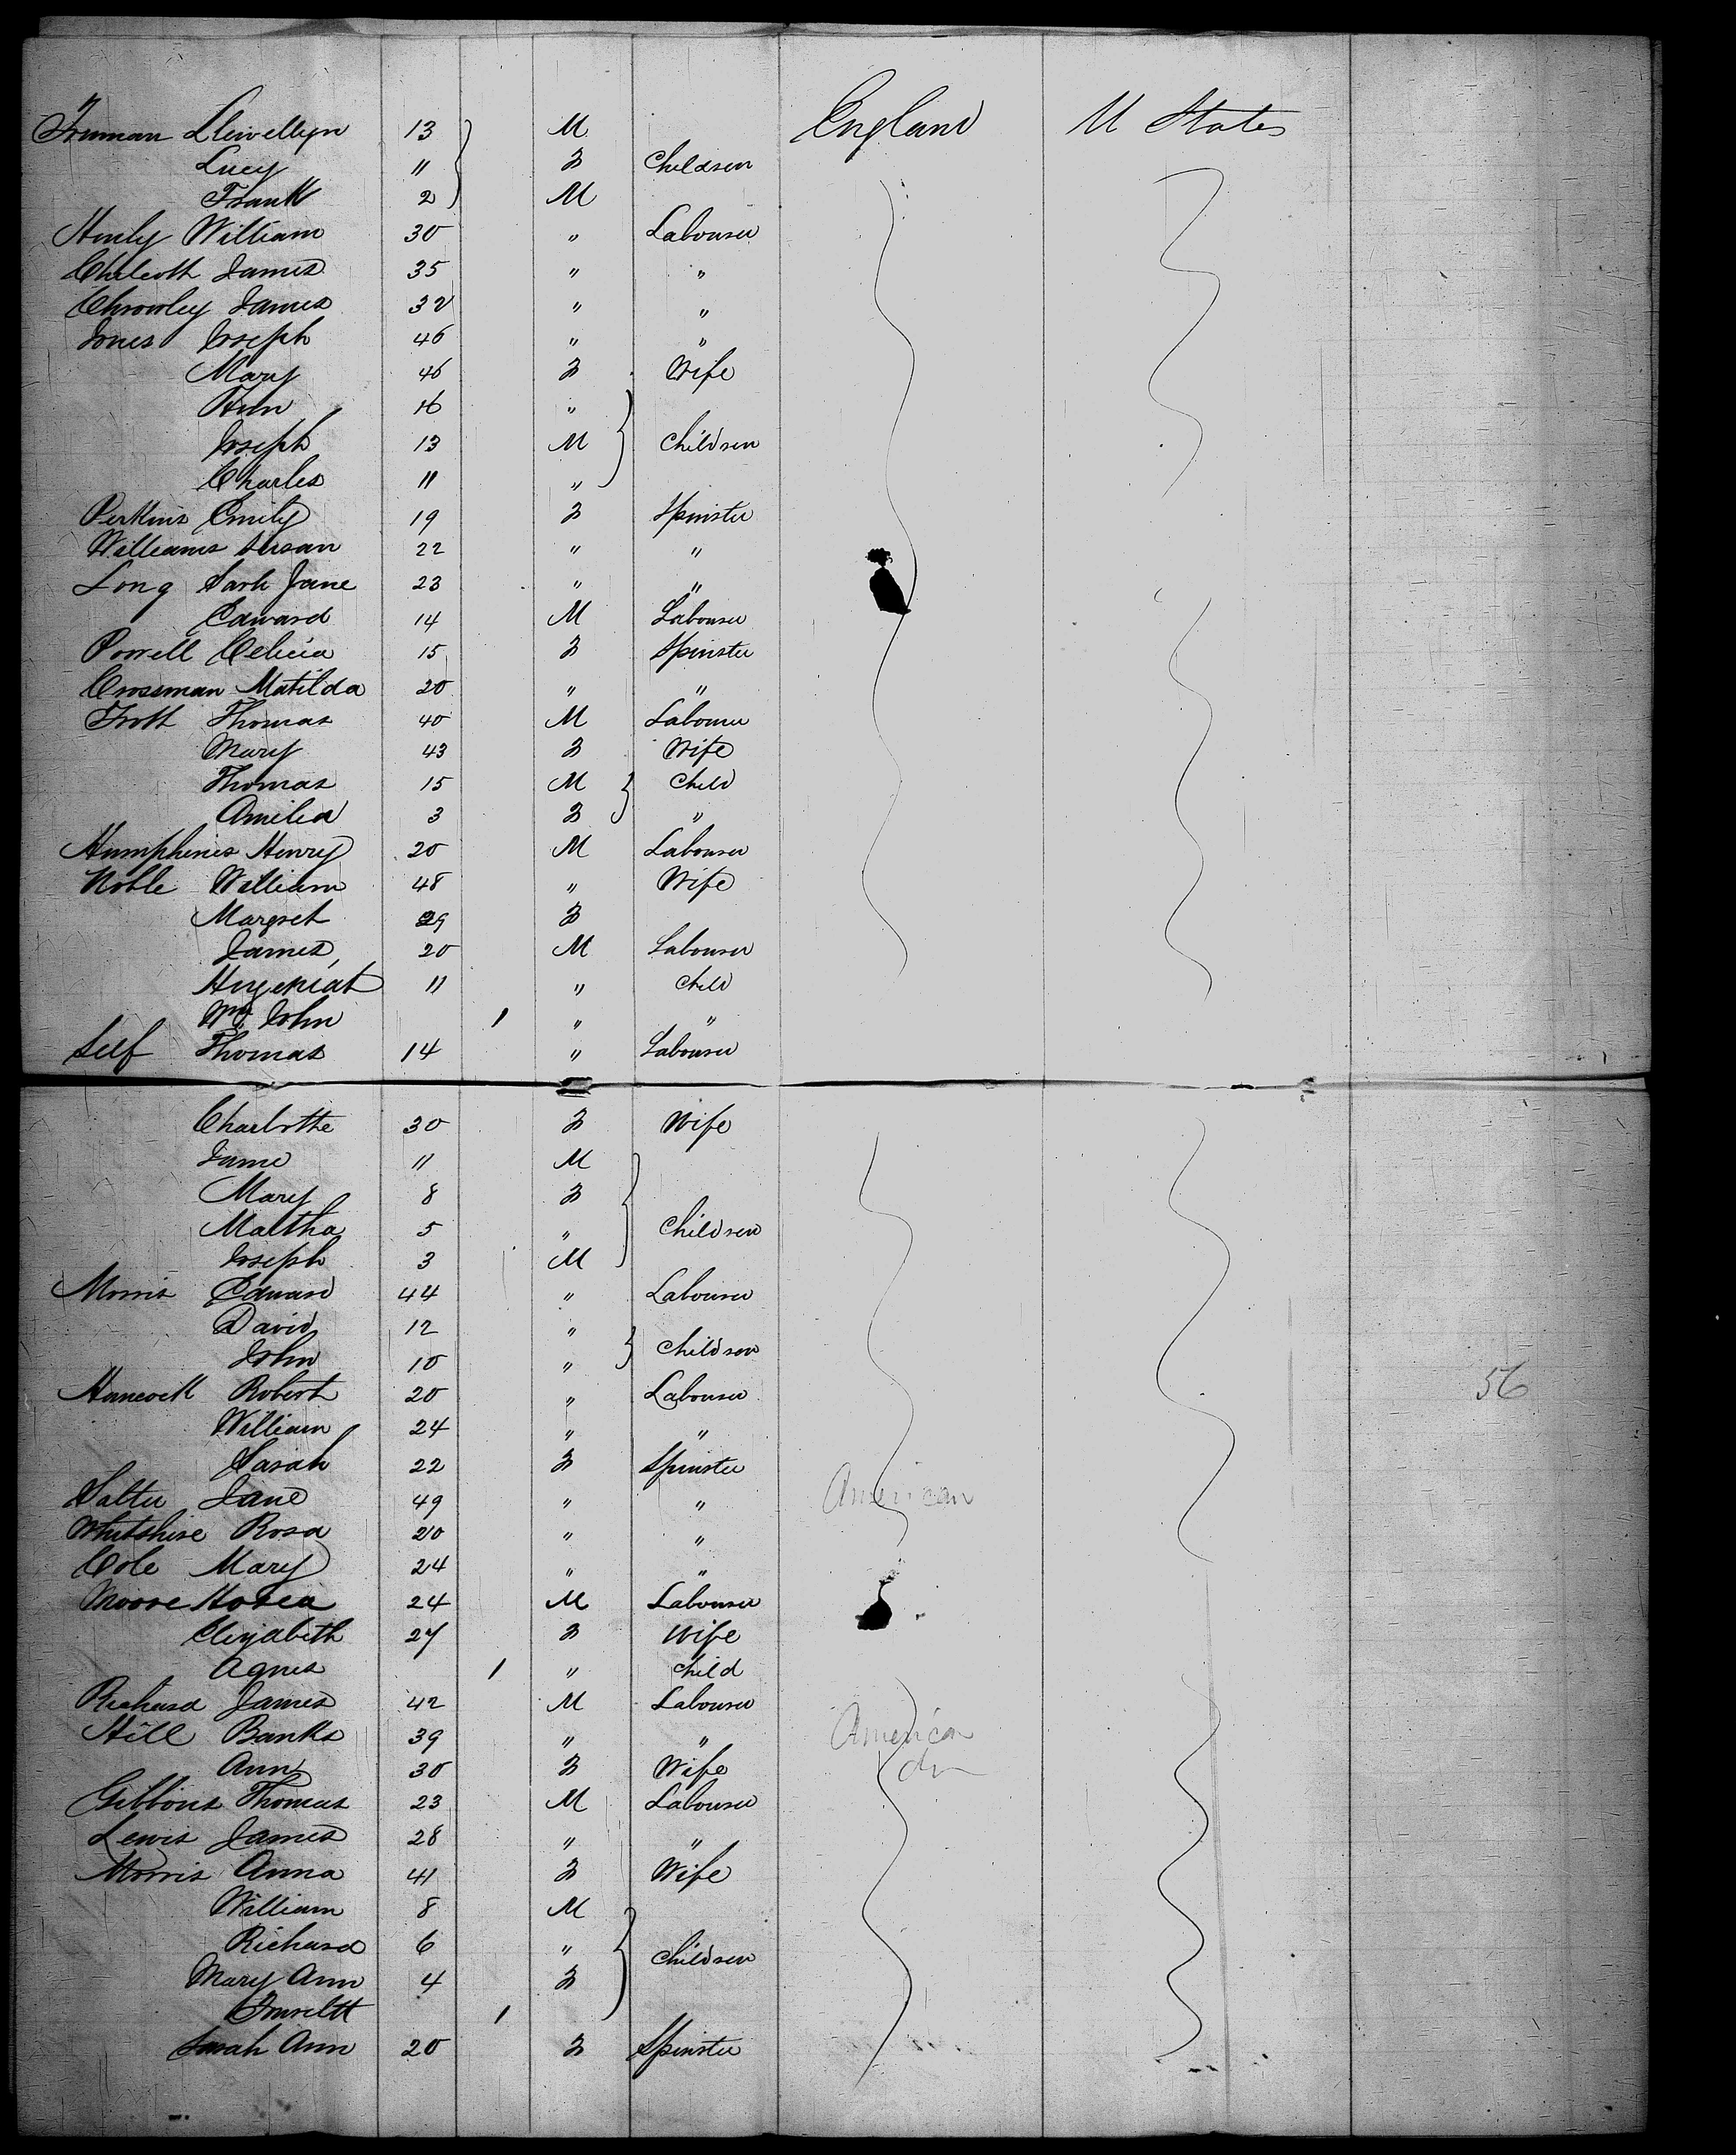 Truman Llewellyn 13 M England U States
Lucy 11 F Children
Frank 2 M
Henly William 30 " Labourer
Chilcott James 35 " "
Chrowley James 32 " "
Jones Joseph 46 " "
Mary 46 F Wife
Ann 16 "
Joseph 13 M Children
Charles 11 "
Perkins Emily 19 F Spinster
Williams Susan 22 " "
Long Sarh Jane 23 " "
Edward 14 M Labourer
Powell Celicia 15 F Spinster
Crossman Matilda 20 " "
Trott Thomas 40 M Labourer
Mary 43 F Wife
Thomas 15 M Child
Amelia 3 F "
Humpheries Henry 20 M Labourer
Noble William 48 " Wife
Margret 29 F
James 20 M Labourer
11 " Child
Wm John 1 " "
Self Thomas 14 " Labourer
Charlotte 30 F Wife
Jame 11 M
Mary 8 F
Martha 5 " Children
Joseph 3 M
Morris Edward 44 " Labourer
David 12 "
John 10 " Children
Hancock Robert 20 " Labourer
William 24 " "
Sarah 22 F Spinster
Salter Jane 49 " " American
Whitshire Rosa 20 " "
Cole Mary 24 " "
Moore Hosea 24 M Labourer
Elizabeth 27 F Wife
Agnes 1 " Child
Richard James 42 M Labourer
Hill Banks 39 " " American
Ann 30 F Wife do
Gibbons Thomas 23 M Labourer
Lewis James 28 " "
Morris Anna 41 F Wife
William 8 M
Richard 6 " Children
Mary Ann 4 F
1
Sarah Ann 20 F Spinster
56